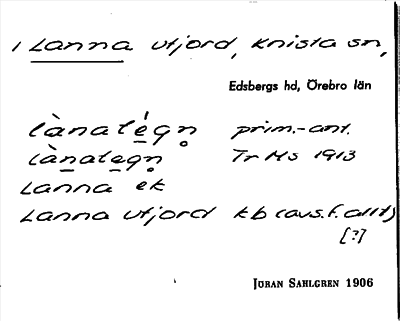 1 Lanna utjord, Knista sn,
Edsbergs hd, Örebro län
prim.-ant.
Tr Ms 1913
Lanna ek
Lanna utjord kb (avs. f. allt)
[?]
JÖRAN SAHLGREN 1906